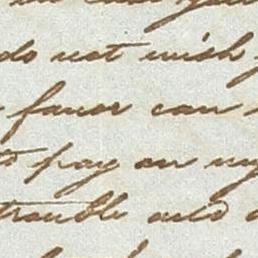 do not wish
favor can
pay on my
trouble and